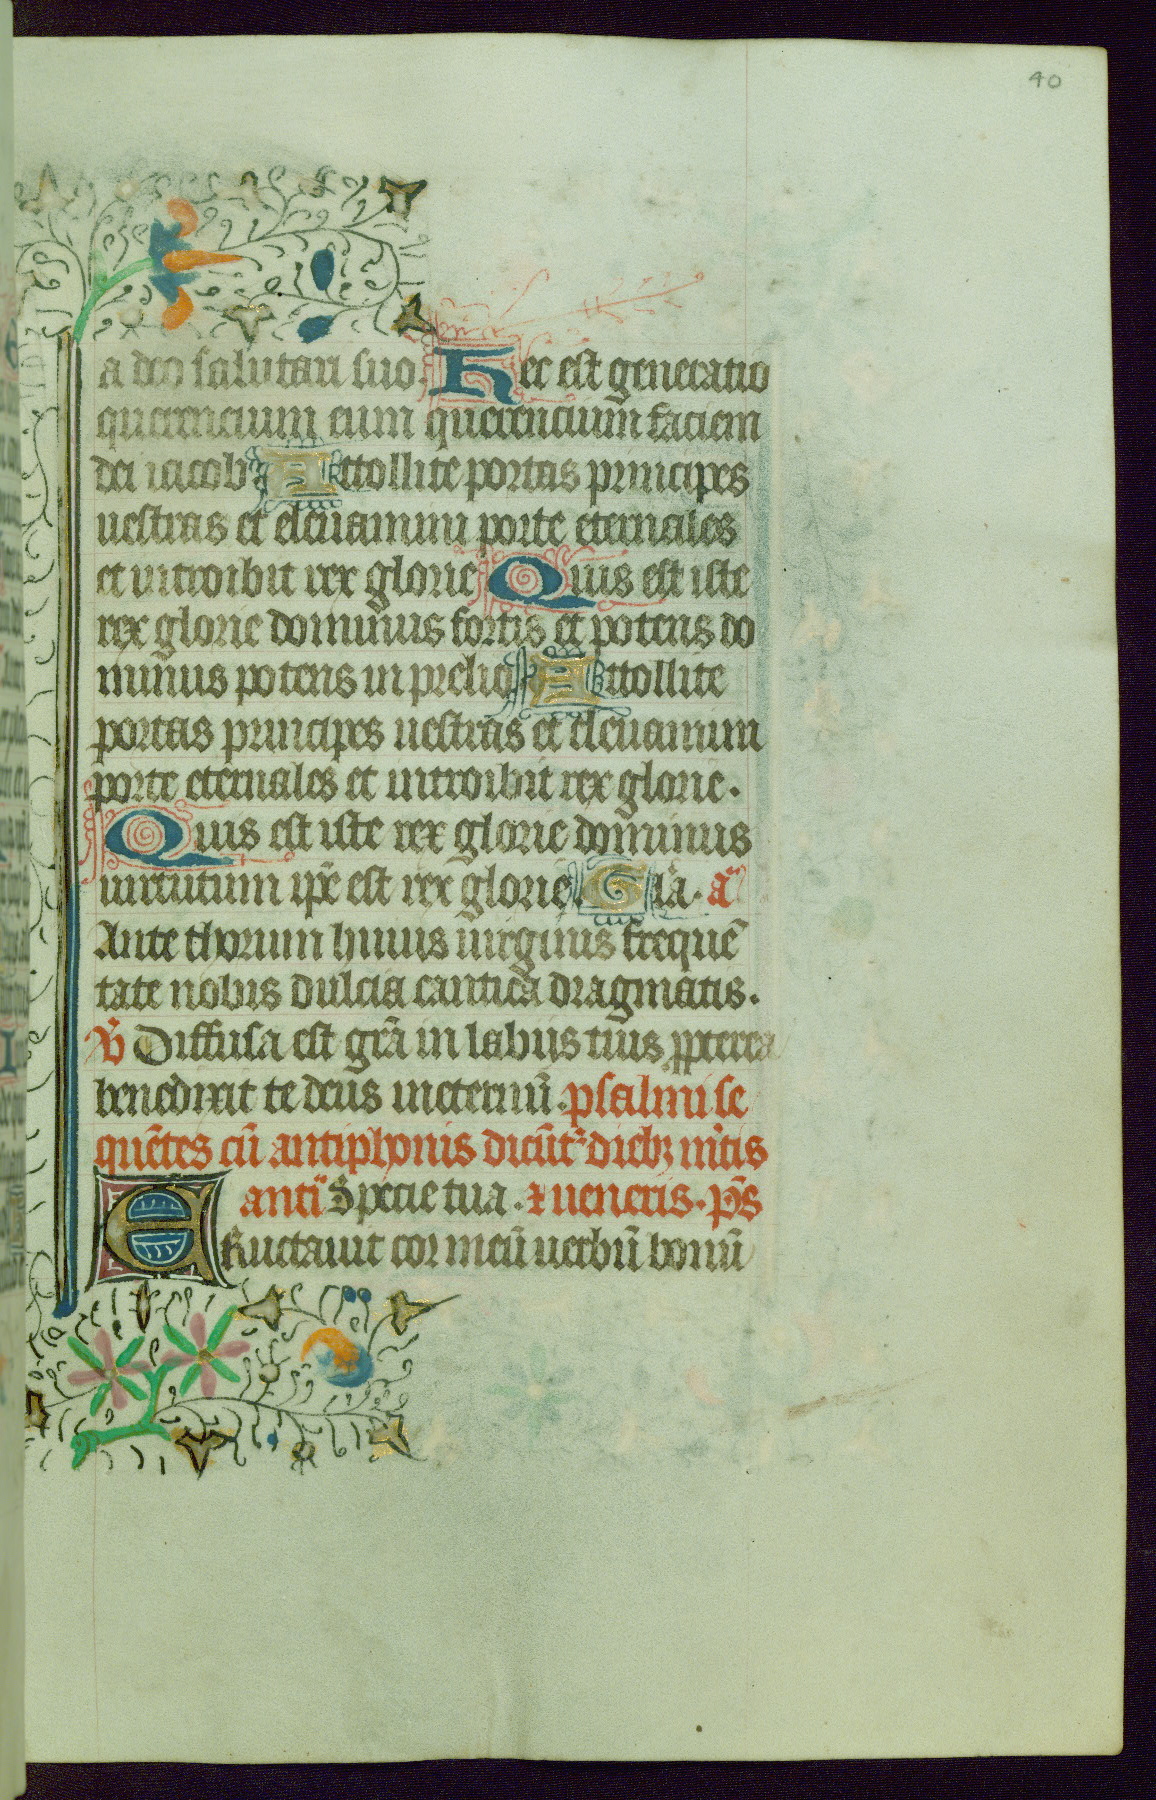 40
a deo salutari suo. Hec est generatio
querencium eum querencium faciem
dei iacob Attollite portas principes
uestras et eleuamini porte eternales
et introibit rex glorie Quis est iste
rex glorie dominus fortis et potens do
minus potens in prelio Attollite
portas principes uestras et eleuamini
porte eternales et introibit rex glorie.
Quis est iste rex glorie dominus
uirtutum ip̄e est rex glorie. Gl̄a. a͞
Ante thorum huius uirginis frequē
tate nobis dulcia cantica dragmatis.
℣ Diffusa est grā in labiis tuis ꝓpterea
benedixit te deus ineternū. psalmi se
quētes cū antiphonis dicūt᷑ dieb⁊ m̄tis
ant͞i Specie tua. ⁊ ueneris. p̄s
ERuctauit cor meū uerbū bonū